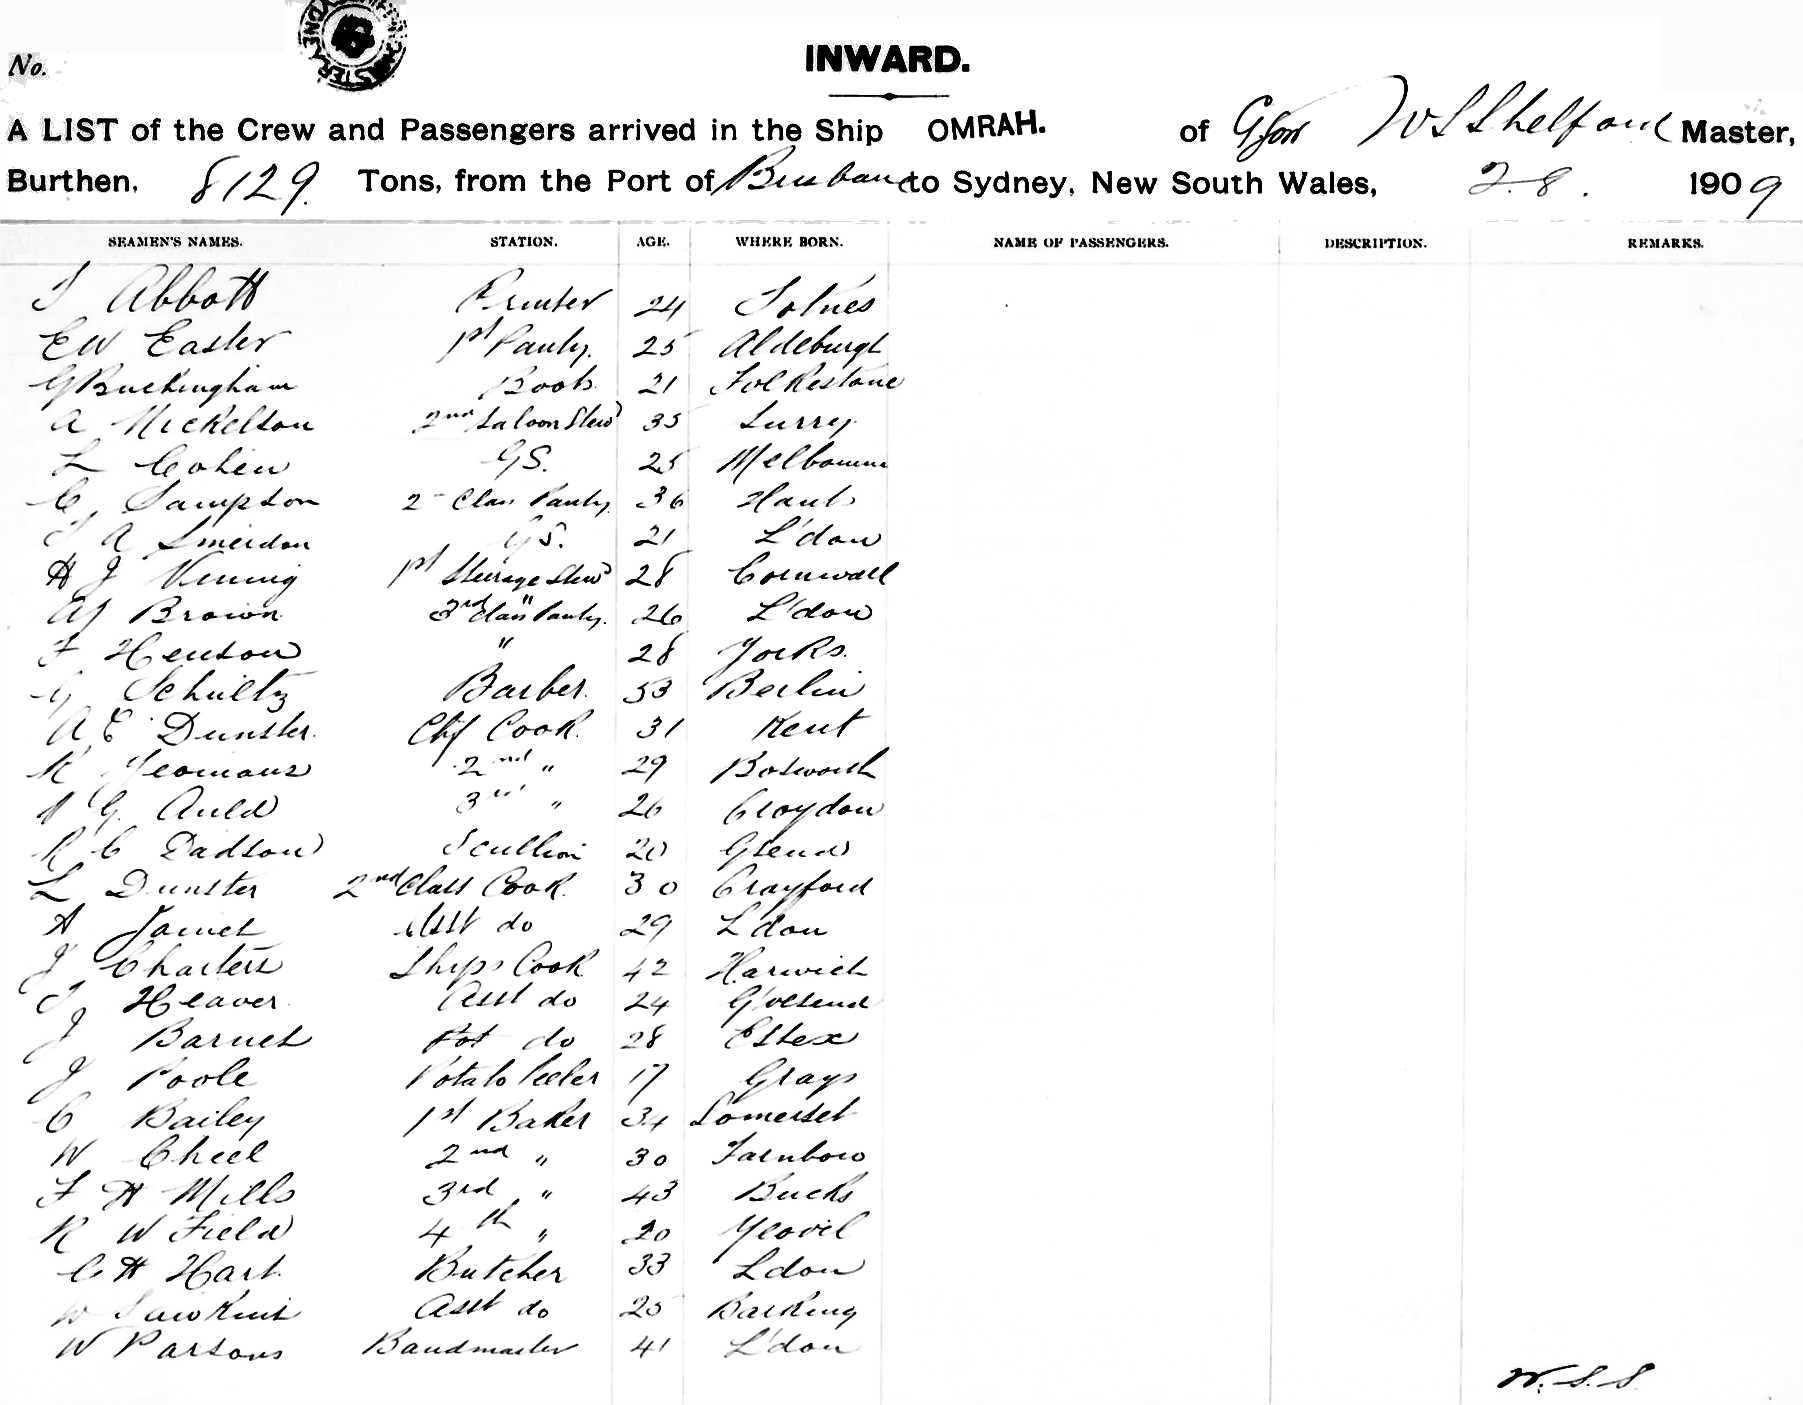 No.
INWARD.
A LIST of the Crew and Passengers arrived in the Ship OMRAH. of W S Shelford Master,
Burthen, 8129. Tons, from the Port of Brisbane to Sydney, New South Wales, 2.8. 1909
SEAMEN'S NAMES. STATION. AGE. WHERE BORN. NAME OF PASSENGERS. DESCRIPTION. REMARKS.
Abbott Printer 24 Totnes
E W Easter 1st Pantry. 25 Aldeburgh
G Buckingham Boots 21 Folkestone
A Nickelson 2nd Saloon Stewd 35 Surry
L Cohen GS. 25 Melbourne
C Sampson 2 Class Pantry 36 Hants
A Smerdon GS. 21 L'don
H J Vening 1st Steerage Stewd 28 Cornwall
A J Brown 3rd Class Pantry. 26 L'don
F Henson " 28 Yorks.
G Schultz Barber. 53 Berlin
A E Dunster. Chf Cook. 31 Kent
R Yeomans 2nd " 29 Bosworth
G. Auld 3rd " 26 Croydon
R C Dadson Scullion 20 Gsend
L Dunster 2nd Class Cook. 30 Crayford
A James Asst do 29 L'don
J Charters Ships Cook 42 Harwich
T Heaver Asst do 24 G'vesend
J Barnes do 28 Essex
J Poole Potato Peeler 17 Grays
C Bailey 1st Baker 34 Somerset
W Cheel 2nd " 30 Farnboro
F H Mills 3rd " 43 Bucks
R W Field 4th " 20 Yeovil
C H Hart. Butcher 33 Ldon
W Sawkins Asst do 25 Barking
W Parsons Bandmaster 41 L'don
W. S. S.